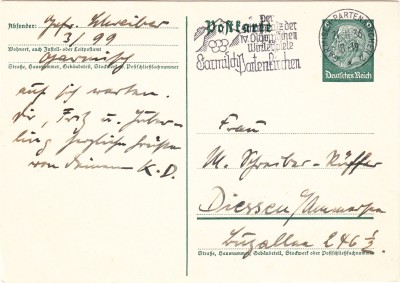 Absender: Gefr. Schreiber
3/99
Wohnort, auch Zustell- oder Leitpostamt
Garmisch
Straße, Hausnummer, Gebäudeteil, Stockwerk oder Postschließfachnummer
auf sich warten.
Dir, Fritz u.
herzliche Grüße
von Deinem K. D.
Postkarte
Der
IV. Olympischen
Winterspiele
Garmisch Partenkirchen
Deutsches Reich
Frau
M. Schreiber-Küffer
Diessen/Ammersee
246 ½
Straße, Hausnummer, Gebäudeteil, Stockwerk oder Postschließfachnummer